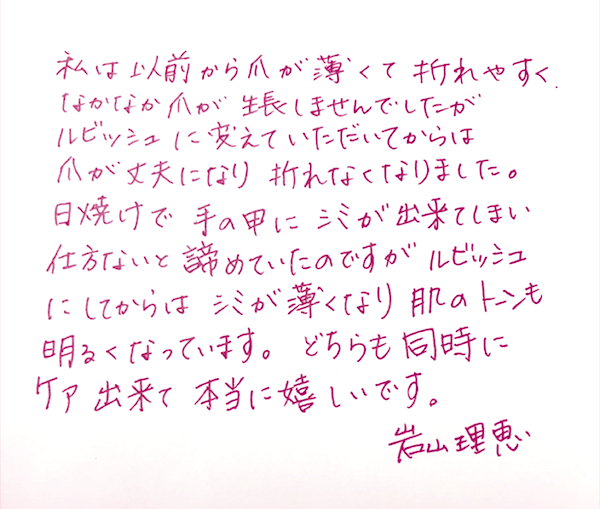 私は以前から爪が薄くて 折れやすく
なかなか爪が 生長しませんでしたが
ルビッシュに変えていただいてからは
爪が丈夫になり 折れなくなりました。
日焼けで 手の甲に シミが出来てしまい
仕方ないと諦めていたのですが ルビッシュ
にしてからは シミが薄くなり 肌のトーンも
明るくなっています。 どちらも同時に
ケア出来て 本当に嬉しいです。
岩山理恵